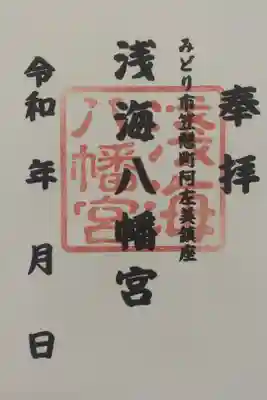 奉拝
みどり市笠懸町阿左美鎮座
浅海八幡宮
令和 年 月 日
淺海
八幡宮